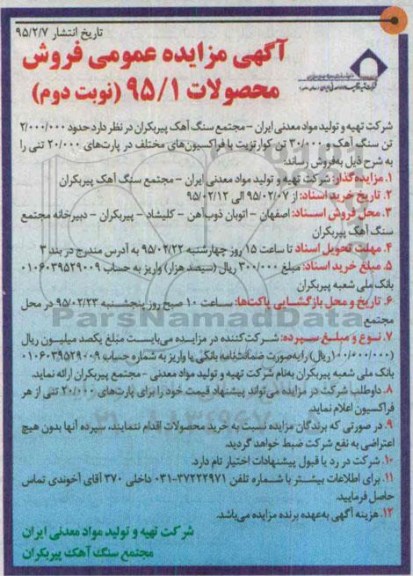 تاریخ انتشار ۹۵/۲/۷
آگهی مزایده عمومی فروش
محصولات ۹۵/۱ (نوبت دوم)
شرکت تهیه و تولید مواد معدنی ایران – مجتمع سنگ آهک پیربکران در نظر دارد حدود ۲/۰۰۰/۰۰۰
تن سنگ آهک و ۳۰/۰۰۰ تن کوارتزیت با فراکسیون‌های مختلف در پارت‌های ۲۰/۰۰۰ تنی را
به شرح ذیل به‌فروش رساند:
۱. مزایده‌گذار: شرکت تهیه و تولید مواد معدنی ایران – مجتمع سنگ آهک پیربکران
۲. تاریخ خرید اسناد: از ۹۵/۰۲/۰۷ الی ۹۵/۰۲/۱۲
۳. محل فروش اسناد: اصفهان – اتوبان ذوب‌آهن – کلیشاد – پیربکران – دبیرخانه مجتمع
سنگ آهک پیربکران
۴. مهلت تحویل اسناد تا ساعت ۱۵ روز چهارشنبه ۹۵/۰۲/۲۲ به آدرس مندرج در بند ۳
۵. مبلغ خرید اسناد: مبلغ ۳۰۰/۰۰۰ ریال (سیصد هزار) واریز به حساب ۰۱۰۶۰۳۹۵۲۹۰۰۹
بانک ملی شعبه پیربکران
۶. تاریخ و محل بازگشایی پاکت‌ها: ساعت ۱۰ صبح روز پنجشنبه ۹۵/۰۲/۲۳ در محل
مجتمع
۷. نوع و مبلغ سپرده: شرکت‌کننده در مزایده می‌بایست مبلغ یکصد میلیون ریال
(۱۰۰/۰۰۰/۰۰۰ ریال) را به‌صورت ضمانتنامه بانکی یا واریز به شماره حساب ۰۱۰۶۰۳۹۵۲۹۰۰۹
بانک ملی شعبه پیربکران به‌نام شرکت تهیه و تولید مواد معدنی – مجتمع پیربکران ارائه نماید.
۸. داوطلب شرکت در مزایده می‌تواند پیشنهاد قیمت خود را برای پارت‌های ۲۰/۰۰۰ تنی از هر
فراکسیون اعلام نماید.
۹. در صورتی که برندگان مزایده نسبت به خرید محصولات اقدام ننمایند، سپرده آنها بدون هیچ
اعتراضی به نفع شرکت ضبط خواهد گردید.
۱۰. شرکت در رد یا قبول پیشنهادات اختیار تام دارد.
۱۱. برای اطلاعات بیشتر با شماره تلفن ۳۷۲۲۲۹۷۱-۰۳۱ داخلی ۳۷۰ آقای آخوندی تماس
حاصل فرمایید.
۱۲. هزینه آگهی به‌عهده برنده مزایده می‌باشد.
شرکت تهیه و تولید مواد معدنی ایران
مجتمع سنگ آهک پیربکران
ParsNamadData